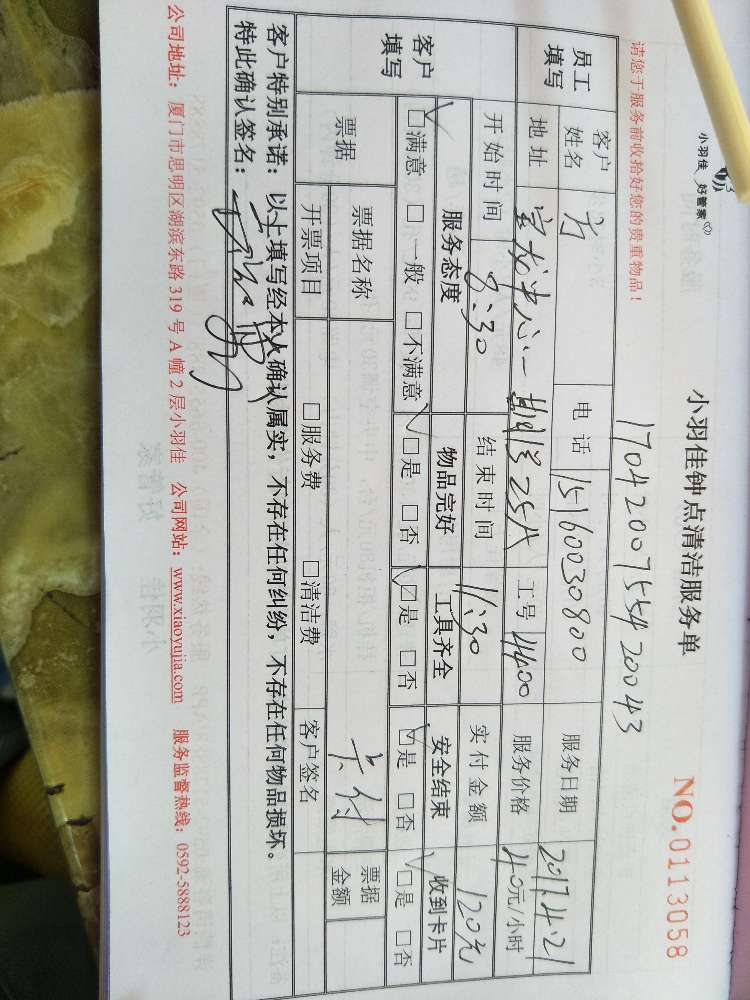 小羽佳 好管家
小羽佳钟点清洁服务单
NO.0113058
1704200755420043
请您于服务前收拾好您的贵重物品！
员工填写
客户姓名 方 电话 15160030800 服务日期 2017.4.21
地址 宝龙中心一期 25A 工号 1400 服务价格 40元/小时
开始时间 8:30 结束时间 11:30 实付金额 120元
客户填写
服务态度 物品完好 工具齐全 安全结束 收到卡片
□满意 □一般 □不满意 □是 □否 □是 □否 □是 □否 □是 □否
票据 票据名称 卡付 票据金额
开票项目 □服务费 □清洁费 客户签名
客户特别承诺：以上填写经本人确认属实，不存在任何纠纷，不存在任何物品损坏。
特此确认签名：
公司地址：厦门市思明区湖滨东路 319 号 A 幢 2 层小羽佳 公司网站：www.xiaoyujia.com 服务监督热线：0592-5888123